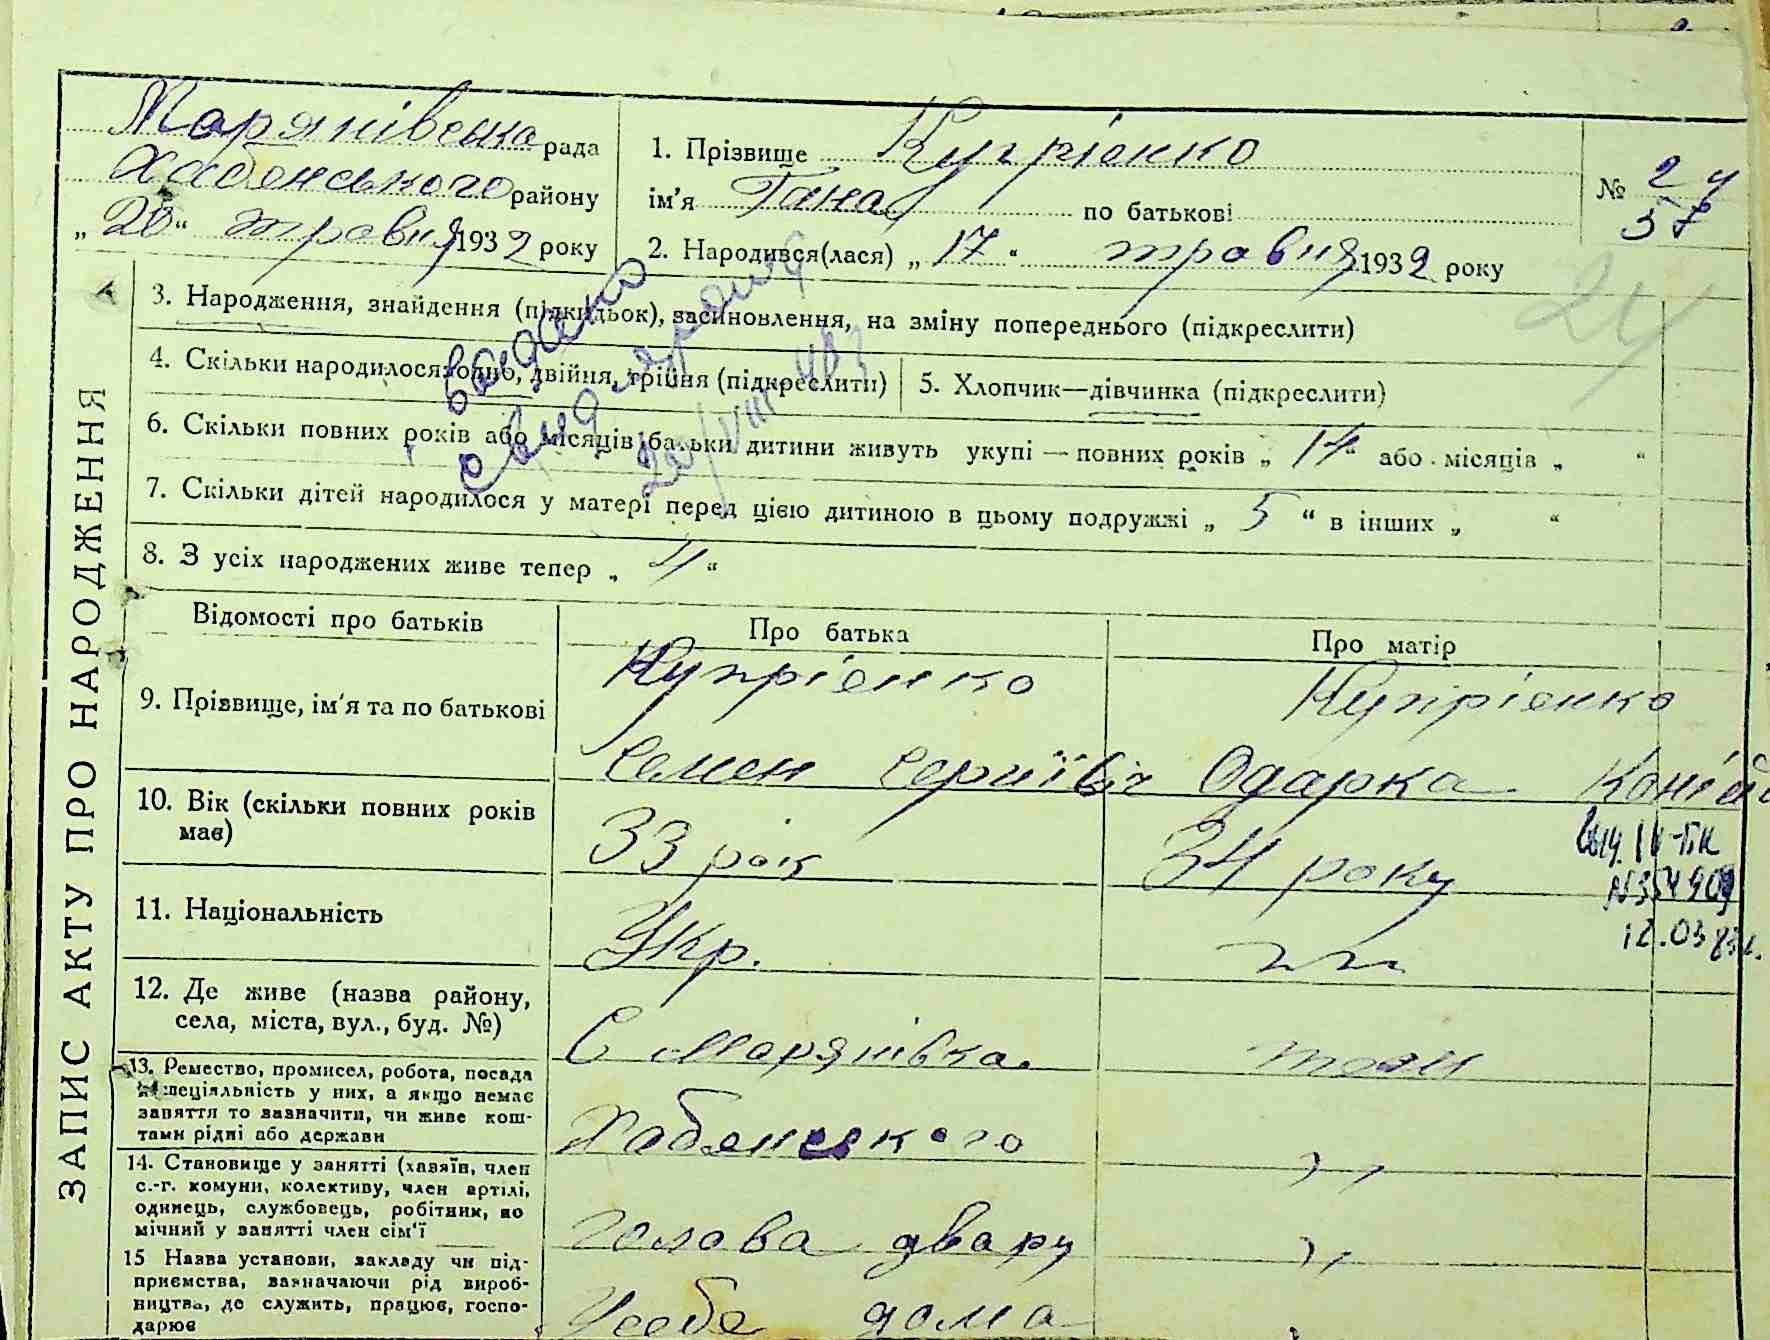 ЗАПИС АКТУ ПРО НАРОДЖЕННЯ
Марянівська рада
Хабенського району
„20“ травня 1932 року
1. Прізвище Купрієнко
ім'я Гана по батькові
№ 24
37
2. Народився(лася) „17“ травня 1932 року
24
3. Народження, знайдення (підкидьок), засиновлення, на зміну попереднього (підкреслити)
4. Скільки народилося: одно, двійня, трійня (підкреслити)
5. Хлопчик—дівчинка (підкреслити)
6. Скільки повних років або місяців батьки дитини живуть укупі — повних років „14“ або місяців „ “
7. Скільки дітей народилося у матері перед цією дитиною в цьому подружжі „5“ в інших „ “
8. З усіх народжених живе тепер „4“
Відомості про батьків
Про батька
Про матір
9. Прізвище, ім'я та по батькові
Купрієнко
Семен Сергиївіч
Купрієнко
Одарка
10. Вік (скільки повних років
має)
33 рок
34 року
11. Національність
Укр.
12. Де живе (назва району,
села, міста, вул., буд. №)
С Марянівка
тоже
13. Ремество, промисел, робота, посада
й спеціяльність у них, а якщо немає
заняття то зазначити, чи живе кош-
тами рідні або держави
Хабенського
„
14. Становище у занятті (хазяїн, член
с.-г. комуни, колективу, член артілі,
одинець, службовець, робітник, по
мічний у занятті член сім'ї
голова двару
„
15 Назва установи, закладу чи під-
приємства, зазначаючи рід вироб-
ництва, де служить, працює, госпо-
дарює
Усебе дома
12.03.83г.